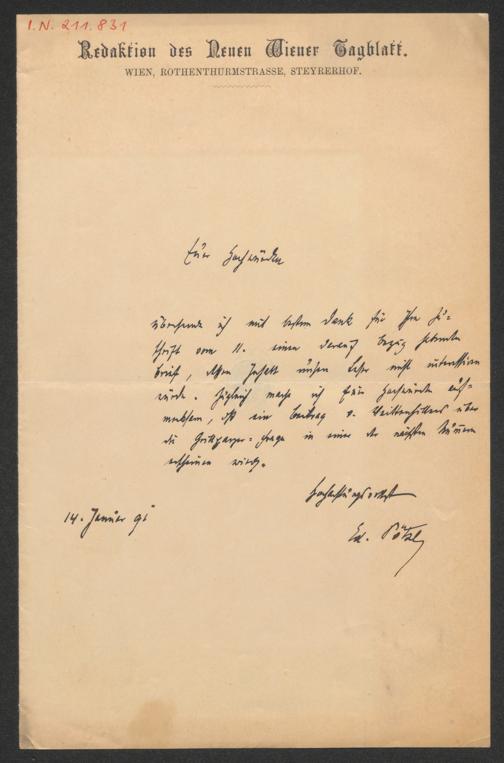 I.N. 211.831
Redaktion des Neuen Wiener Tagblatt.
WIEN, ROTHENTHURMSTRASSE, STEYRERHOF.
Euer Hochwürden
übersende ich mit bestem Dank für Ihre Zu-
schrift vom 11. einen darauf bezug habenden
Brief, dessen Inhalt unsere Leser nicht interessiren
würde. Zugleich mache ich Euer Hochwürden auf-
merksam, daß ein Beitrag v. über
die Grillparzer-Frage in einer der nächsten Nummern
erscheinen wird.
Hochachtungsvollst
14. Januar 91
Ed. Pötzl